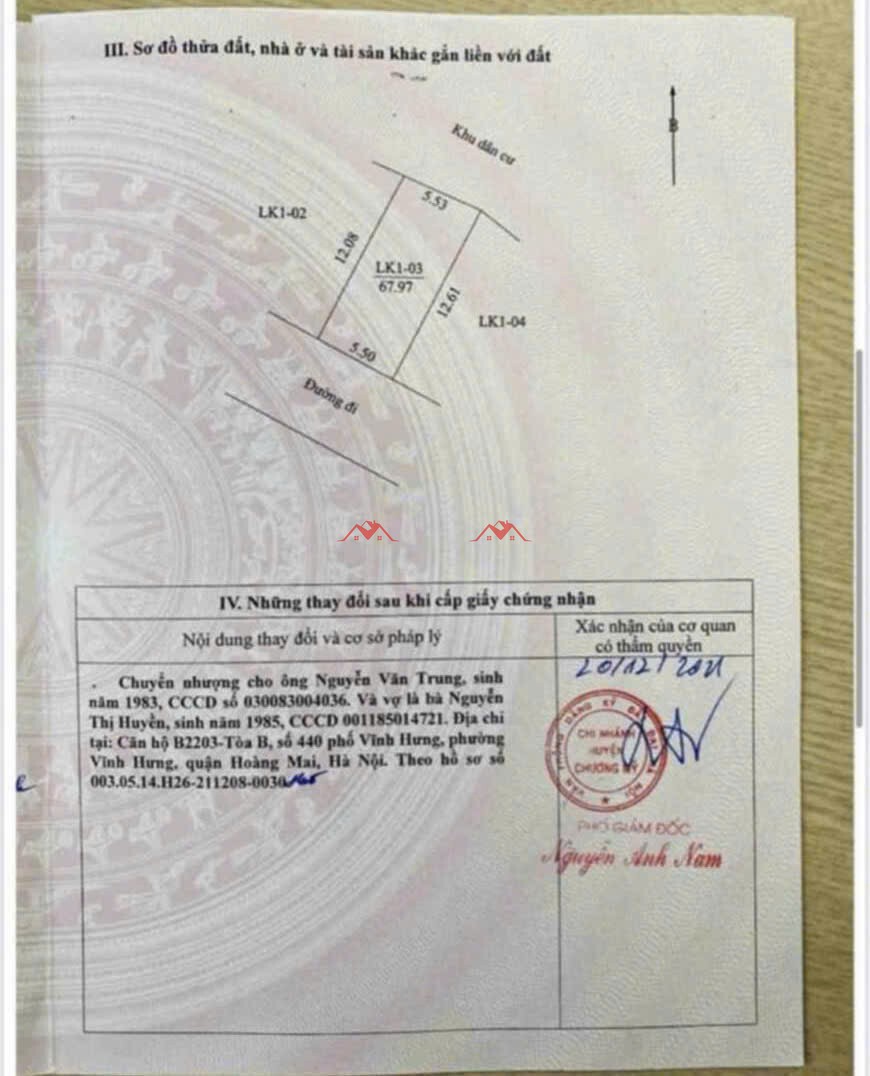 III. Sơ đồ thửa đất, nhà ở và tài sản khác gắn liền với đất
B
Khu dân cư
LK1-02
5.53
12.08
LK1-03
67.97
12.61
LK1-04
5.50
Đường đi
IV. Những thay đổi sau khi cấp giấy chứng nhận
Nội dung thay đổi và cơ sở pháp lý
Xác nhận của cơ quan
có thẩm quyền
Chuyển nhượng cho ông Nguyễn Văn Trung, sinh
năm 1983, CCCD số 030083004036. Và vợ là bà Nguyễn
Thị Huyền, sinh năm 1985, CCCD 001185014721. Địa chỉ
tại: Căn hộ B2203-Tòa B, số 440 phố Vĩnh Hưng, phường
Vĩnh Hưng, quận Hoàng Mai, Hà Nội. Theo hồ sơ số
003.05.14.H26-211208-0030
20/12/2021
VĂN PHÒNG ĐĂNG KÝ ĐẤT ĐAI HÀ NỘI
CHI NHÁNH
HUYỆN
CHƯƠNG MỸ
PHÓ GIÁM ĐỐC
Nguyễn Anh Nam